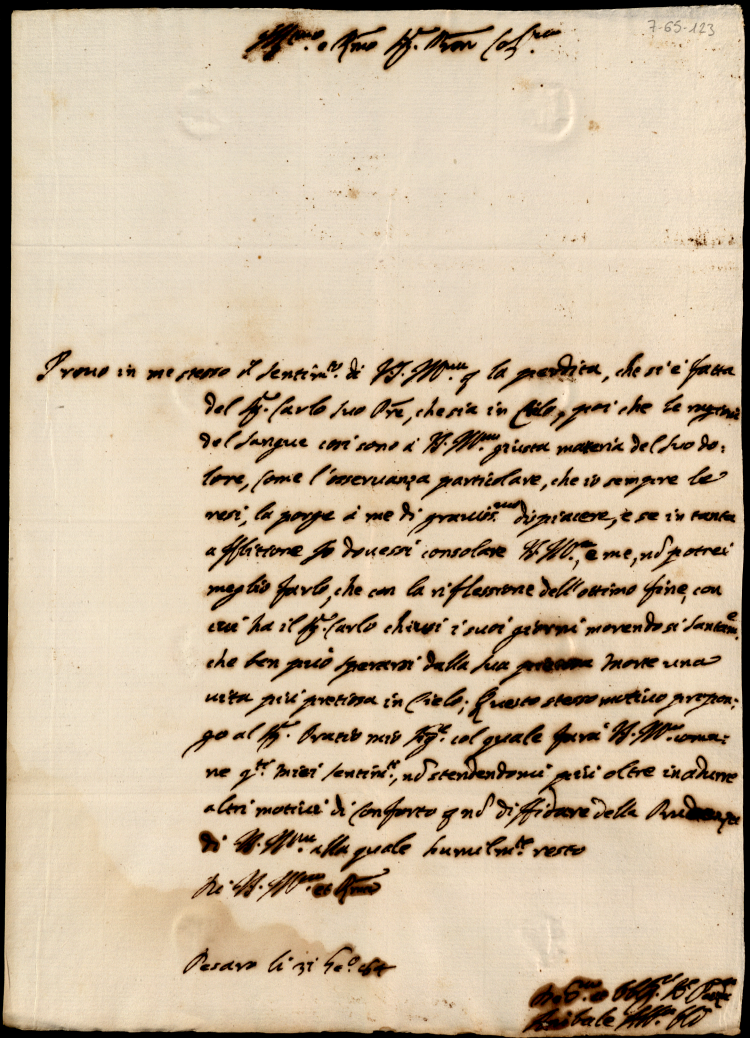 7-65-123
Ill.mo e R.mo Sig. Pron Col.mo
Provo in me stesso il sentim.to di V.S. Ill.ma p la perdita, che si è fatta
del Sig. Carlo suo Pre, che sia in Cielo, poi che le ragioni
del sangue cosi sono à V.S. Ill.ma giusta materia del suo do:
lore, come l'osservanza particolare, che io sempre le
resi, la porge à me di gravis.mo dispiacere, e se in tanta
afflittione Io dovessi consolare V.S. Ill.ma, e me, nō potrei
meglio farlo, che con la riflessione dell'ottimo fine, con
cui ha il Sig. Carlo chiusi i suoi giorni morendo si santam.e
che ben può sperarsi dalla sua morte una
vita più pretiosa in Cielo; Questo stesso motivo propon:
go al Sig. Oratio mio Sig.re col quale farà V.S. Ill.ma comu:
ne q.ti miei sentim.ti, nō stendendomi più oltre in adurre
altri motivi di conforto p nō diffidare della Prudenza
di V.S. Ill.ma alla quale humilm.te resto
Di V.S. Ill.ma et R.ma
Pesaro li 31